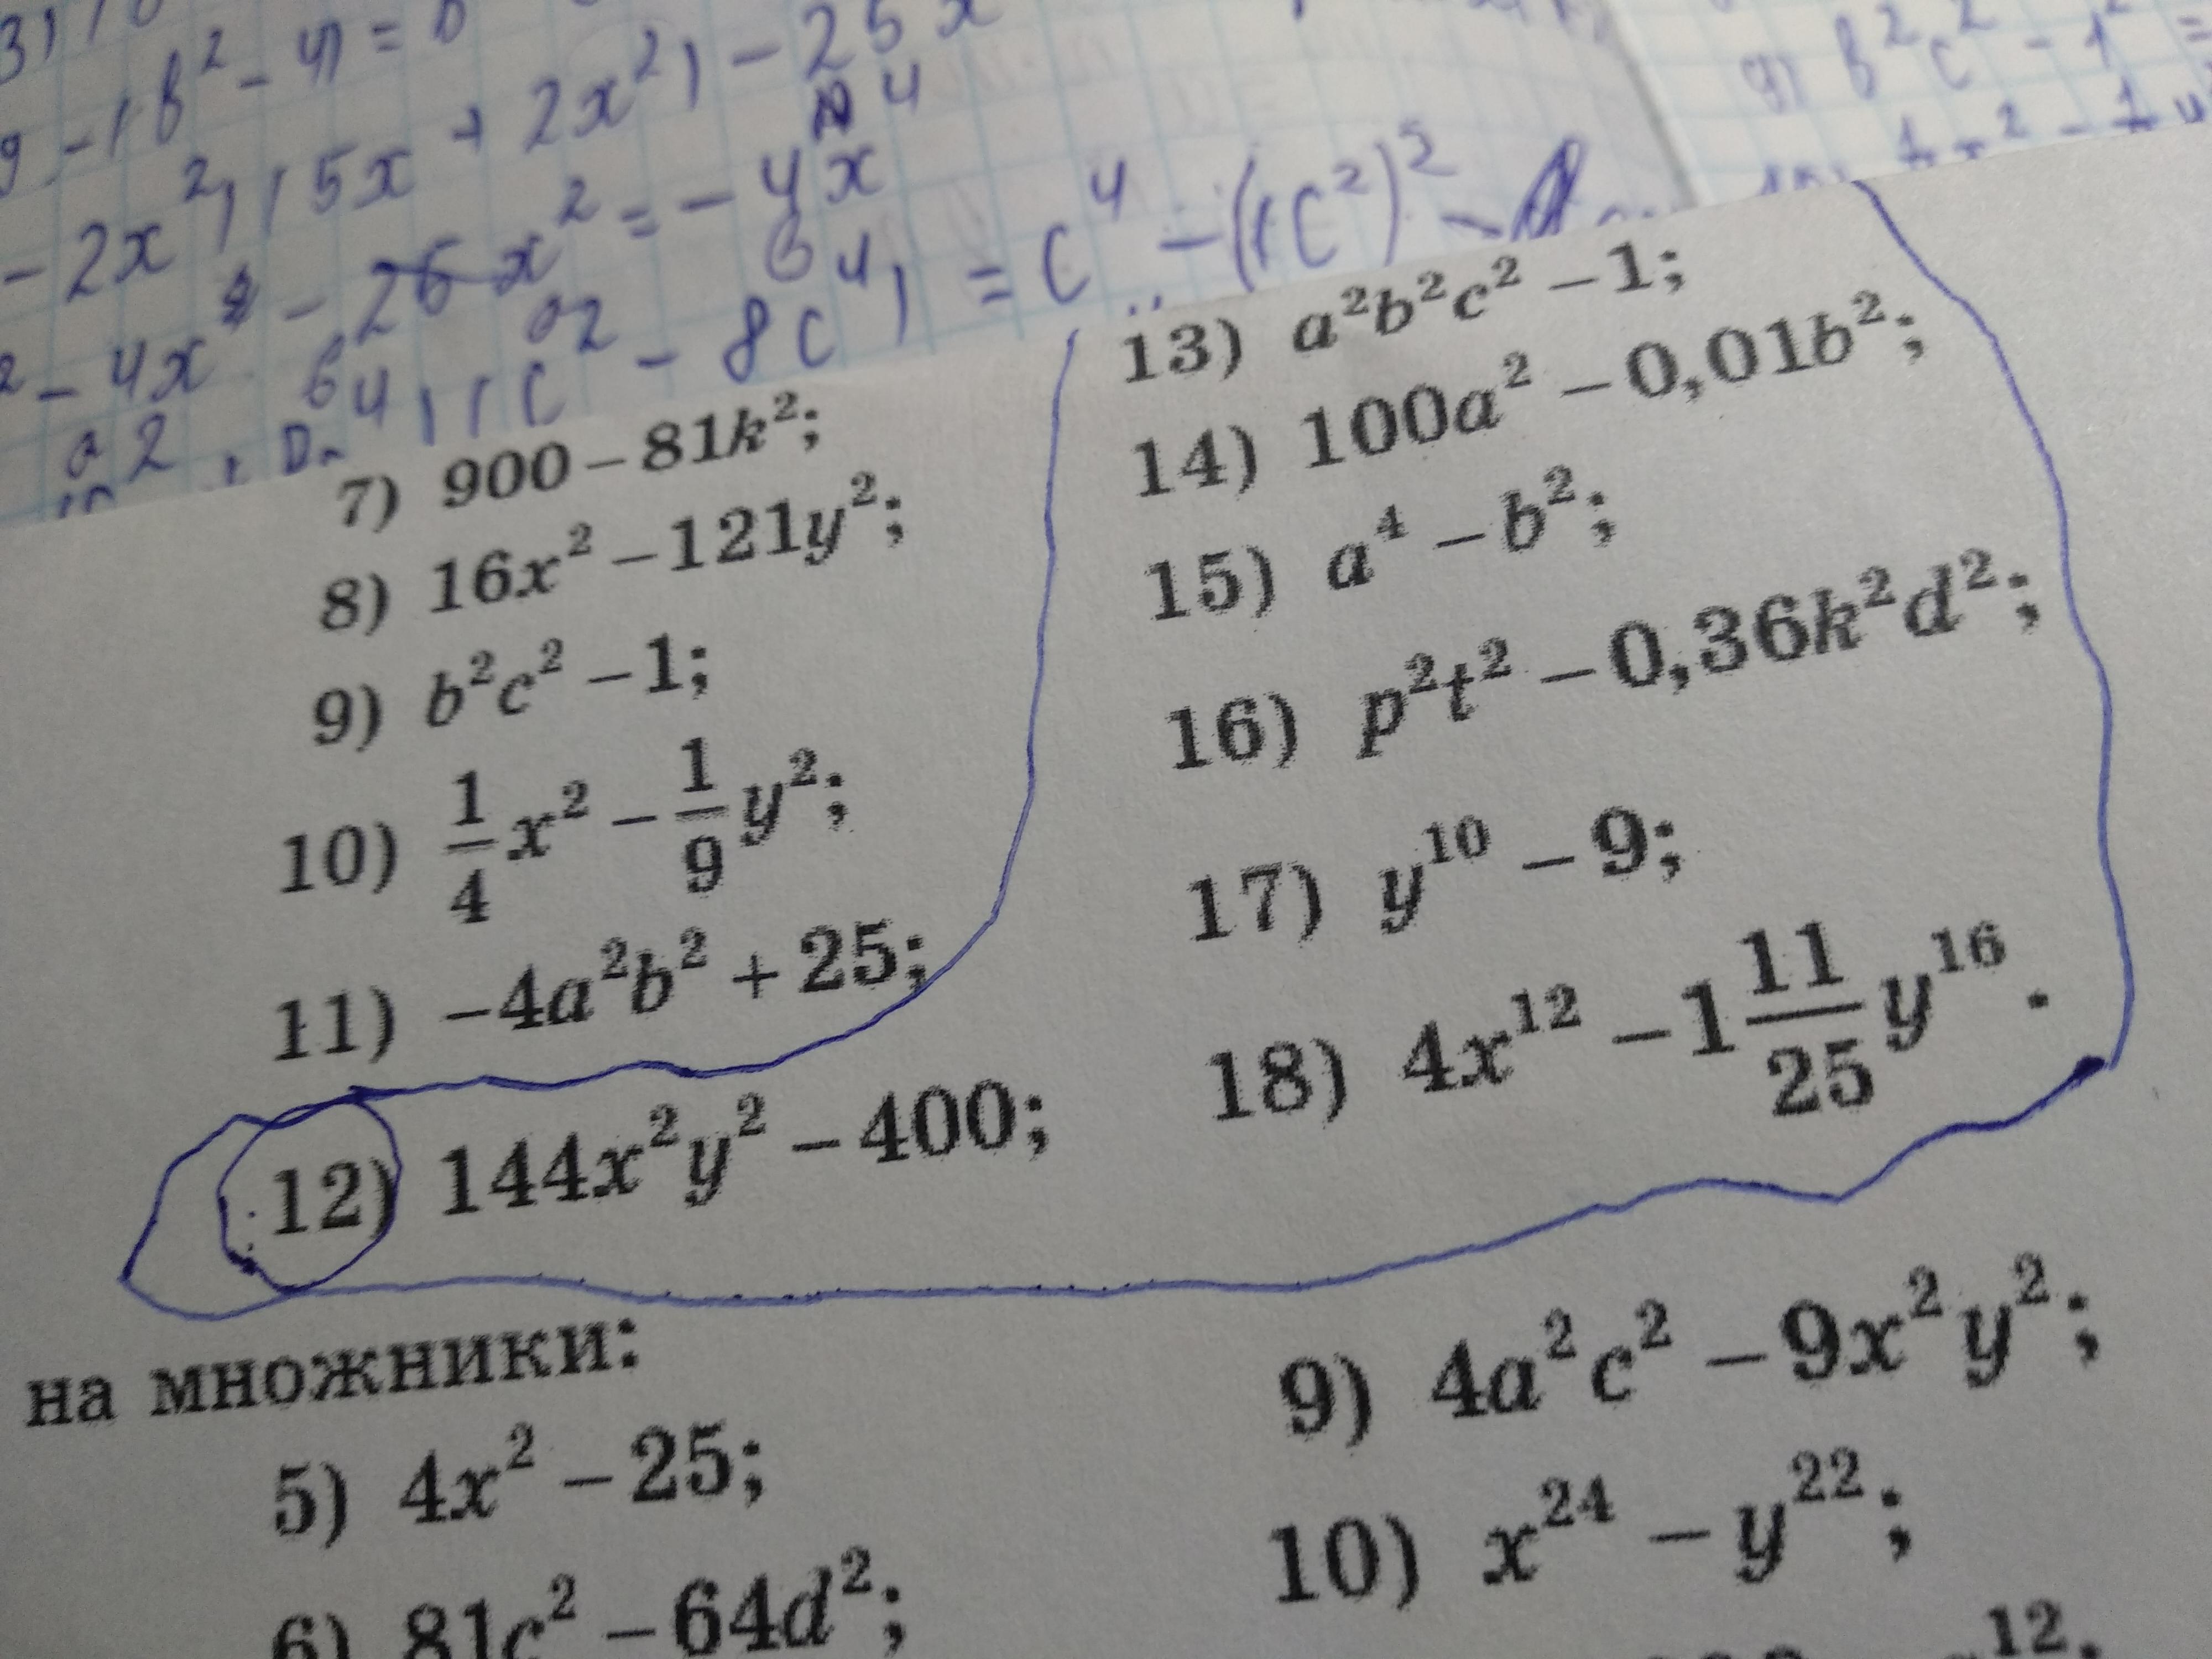 9 - (b² - 4) = b
- 2x²) (5x + 2x²) - 25x
² - 4x⁴ - 25x² = - 4x⁴
- 8c⁴) = c⁴ - (1c²)²
9) b²c² - 1² =
7) 900 – 81k²;
8) 16x² – 121y²;
9) b²c² – 1;
10) 1/4 x² – 1/9 y²;
11) –4a²b² + 25;
12) 144x²y² – 400;
13) a²b²c² – 1;
14) 100a² – 0,01b²;
15) a⁴ – b²;
16) p²t² – 0,36k²d²;
17) y¹⁰ – 9;
18) 4x¹² – 1 11/25 y¹⁶.
на множники:
5) 4x² – 25;
6) 81c² – 64d²;
9) 4a²c² – 9x²y²;
10) x²⁴ – y²²;